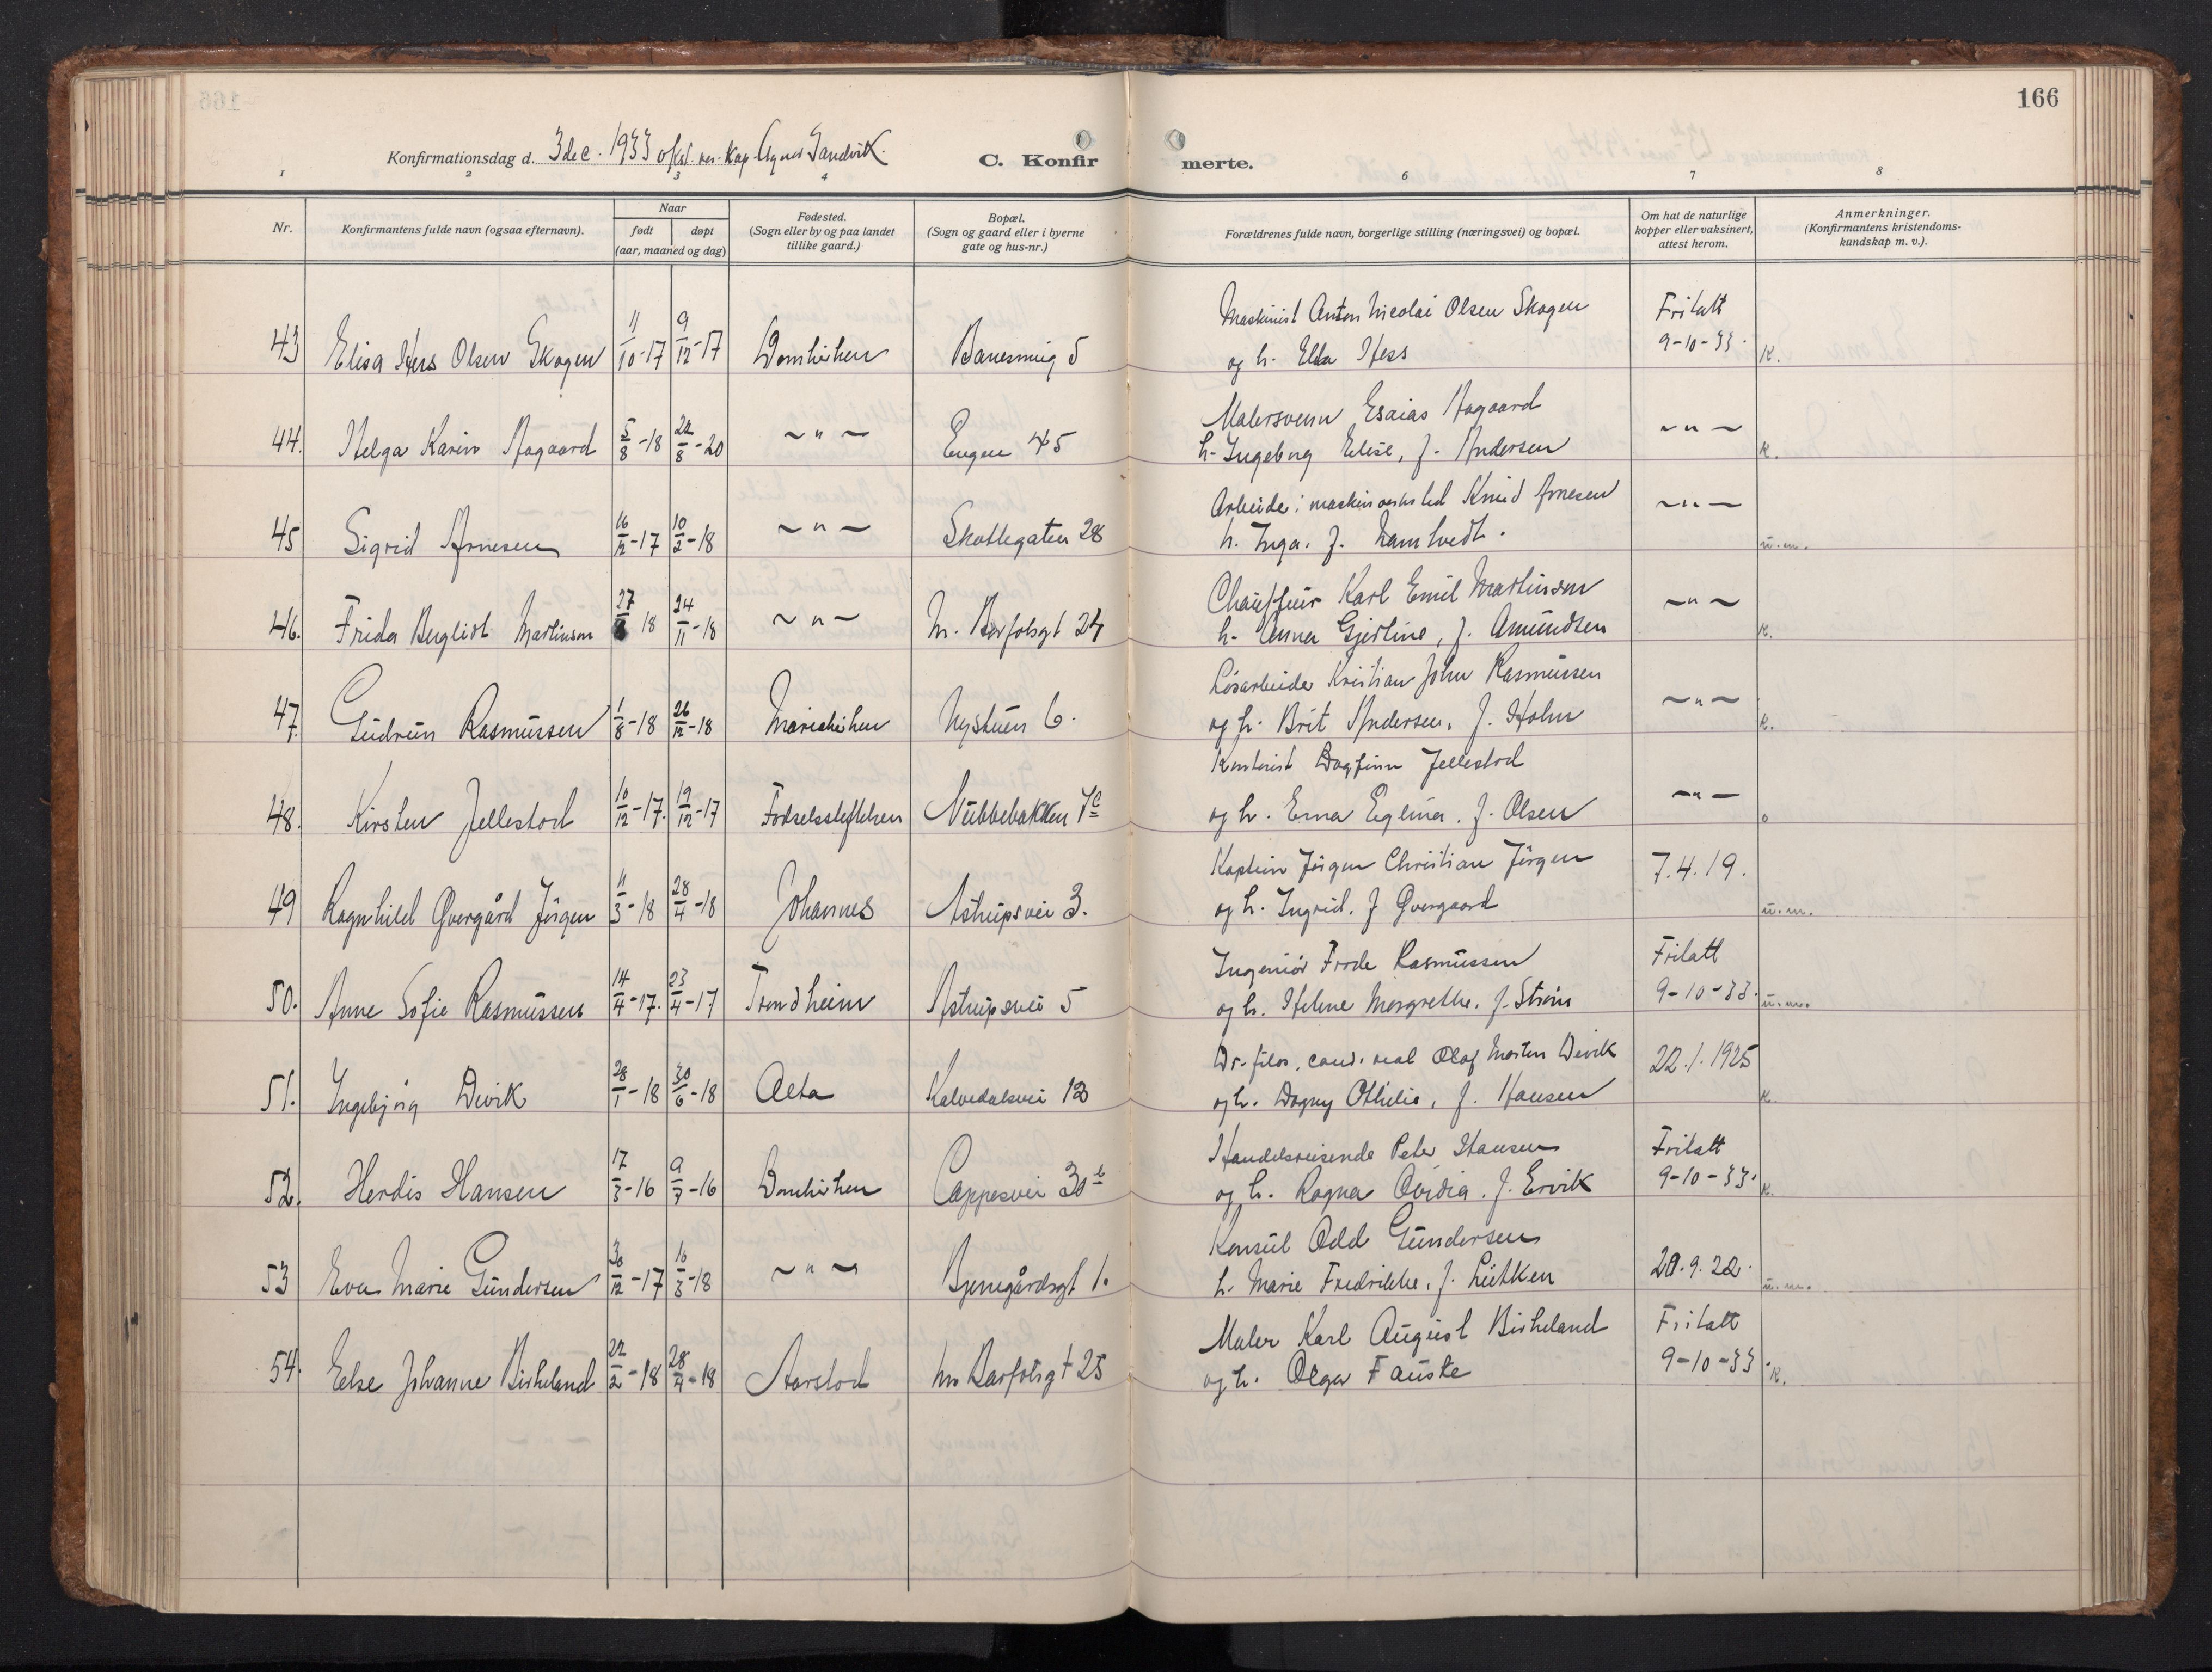 166
Konfirmationsdag d. 3 dec. 1933 v/kst. res. kap. Sandvik.
C. Konfir merte.
1 2 3 4 6 7 8
Nr.
Konfirmantens fulde navn (ogsaa efternavn).
Naar
født døpt
(aar, maaned og dag)
Fødested.
(Sogn eller by og paa landet
tillike gaard.)
Bopæl.
(Sogn og gaard eller i byerne
gate og hus-nr.)
Forældrenes fulde navn, borgerlige stilling (næringsvei) og bopæl.
Om hat de naturlige
kopper eller vaksinert,
attest herom.
Anmerkninger.
(Konfirmantens kristendoms-
kundskap m. v.).
Maskinist Anton Nicolai Olsen Skogen Fritatt
43 Elisa Hess Olsen Skogen 11/10-17 9/12-17 Domkirken 5 og h. Ella Hess 9-10-33. K.
Malersvenn Esaias Aagaard
44. Helga Karin Aagaard 5/8-18 22/8-20 ~ " ~ Engen 45 h. Ingeborg Elise, f. Andersen ~ " ~ K.
Arbeider i maskinverksted Knud Arnesen
45 Sigrid Arnesen 16/12-17 10/2-18 ~ " ~ Skottegaten 28 h. Inga. f. ~ " ~ u.m.
Chauffeur Karl Emil Martinsen
46. Frida Bergliot Martinsen 27/8 18 24/11-18 ~ " ~ N. Barfotsgt 24 h. Anna Gjertine, f. Amundsen ~ " ~ K.
Løsarbeider Kristian John Rasmussen
47. Gudrun Rasmussen 1/8-18 26/12-18 Mariakirken Nystuen 6. og h. Brit Andersen, f. Holm ~ " ~ K.
Kontorist Dagfinn Jellestad
48. Kirsten Jellestad 10/12-17. 19/12-17 Fødselsstiftelsen Nubbebakken 7c og h. Erna Eglina. f. Olsen ~ " ~ o
Kaptein Jørgen Christian Jørgen
49 Ragnhild Øvergård Jørgen 11/3-18 28/4-18 Johannes Astrupsvei 3. og h. Ingrid. f Øvergaard 7.4.19. u.m.
Ingeniør Frode Rasmussen Fritatt
50. Anne Sofie Rasmussen 14/4-17. 23/4-17 Trondheim Astrupsvei 5 og h. Helene Margrethe. f. Strøm 9-10-33. u.m.
Dr. filos. cand. real Olaf Morten Devik
51. Ingebjørg Devik 28/1-18 30/6-18 Alta Kalvedalsvei 12 og h. Dagny Othilie, f. Hansen 22.1.1925 K
Handelsreisende Peter Hansen Fritatt
52. Herdis Hansen 17/3-16 9/7-16 Domkirken Cappesvei 30b og h. Ragna Ovidia. f. Ervik 9-10-33. K.
Konsul Odd Gundersen
53 Eva Marie Gundersen 30/12-17 16/3-18 ~ " ~ Bjerregårdsgt 1. h. Marie Fredrikke. f. Lütken 20.9.22. u.m.
Maler Karl August Birkeland Fritatt
54. Else Johanne Birkeland 22/2-18 28/4-18 Aarstad N. Barfotsgt 25 og h. Olga Fauste 9-10-33. K.